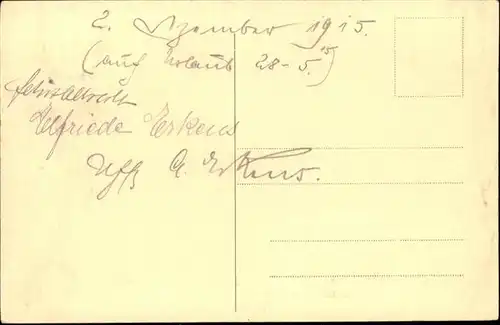 2. Dezember 1915.
(auf Urlaub 28-5.)
Elfriede Erkens
Uffz G. Erkens.